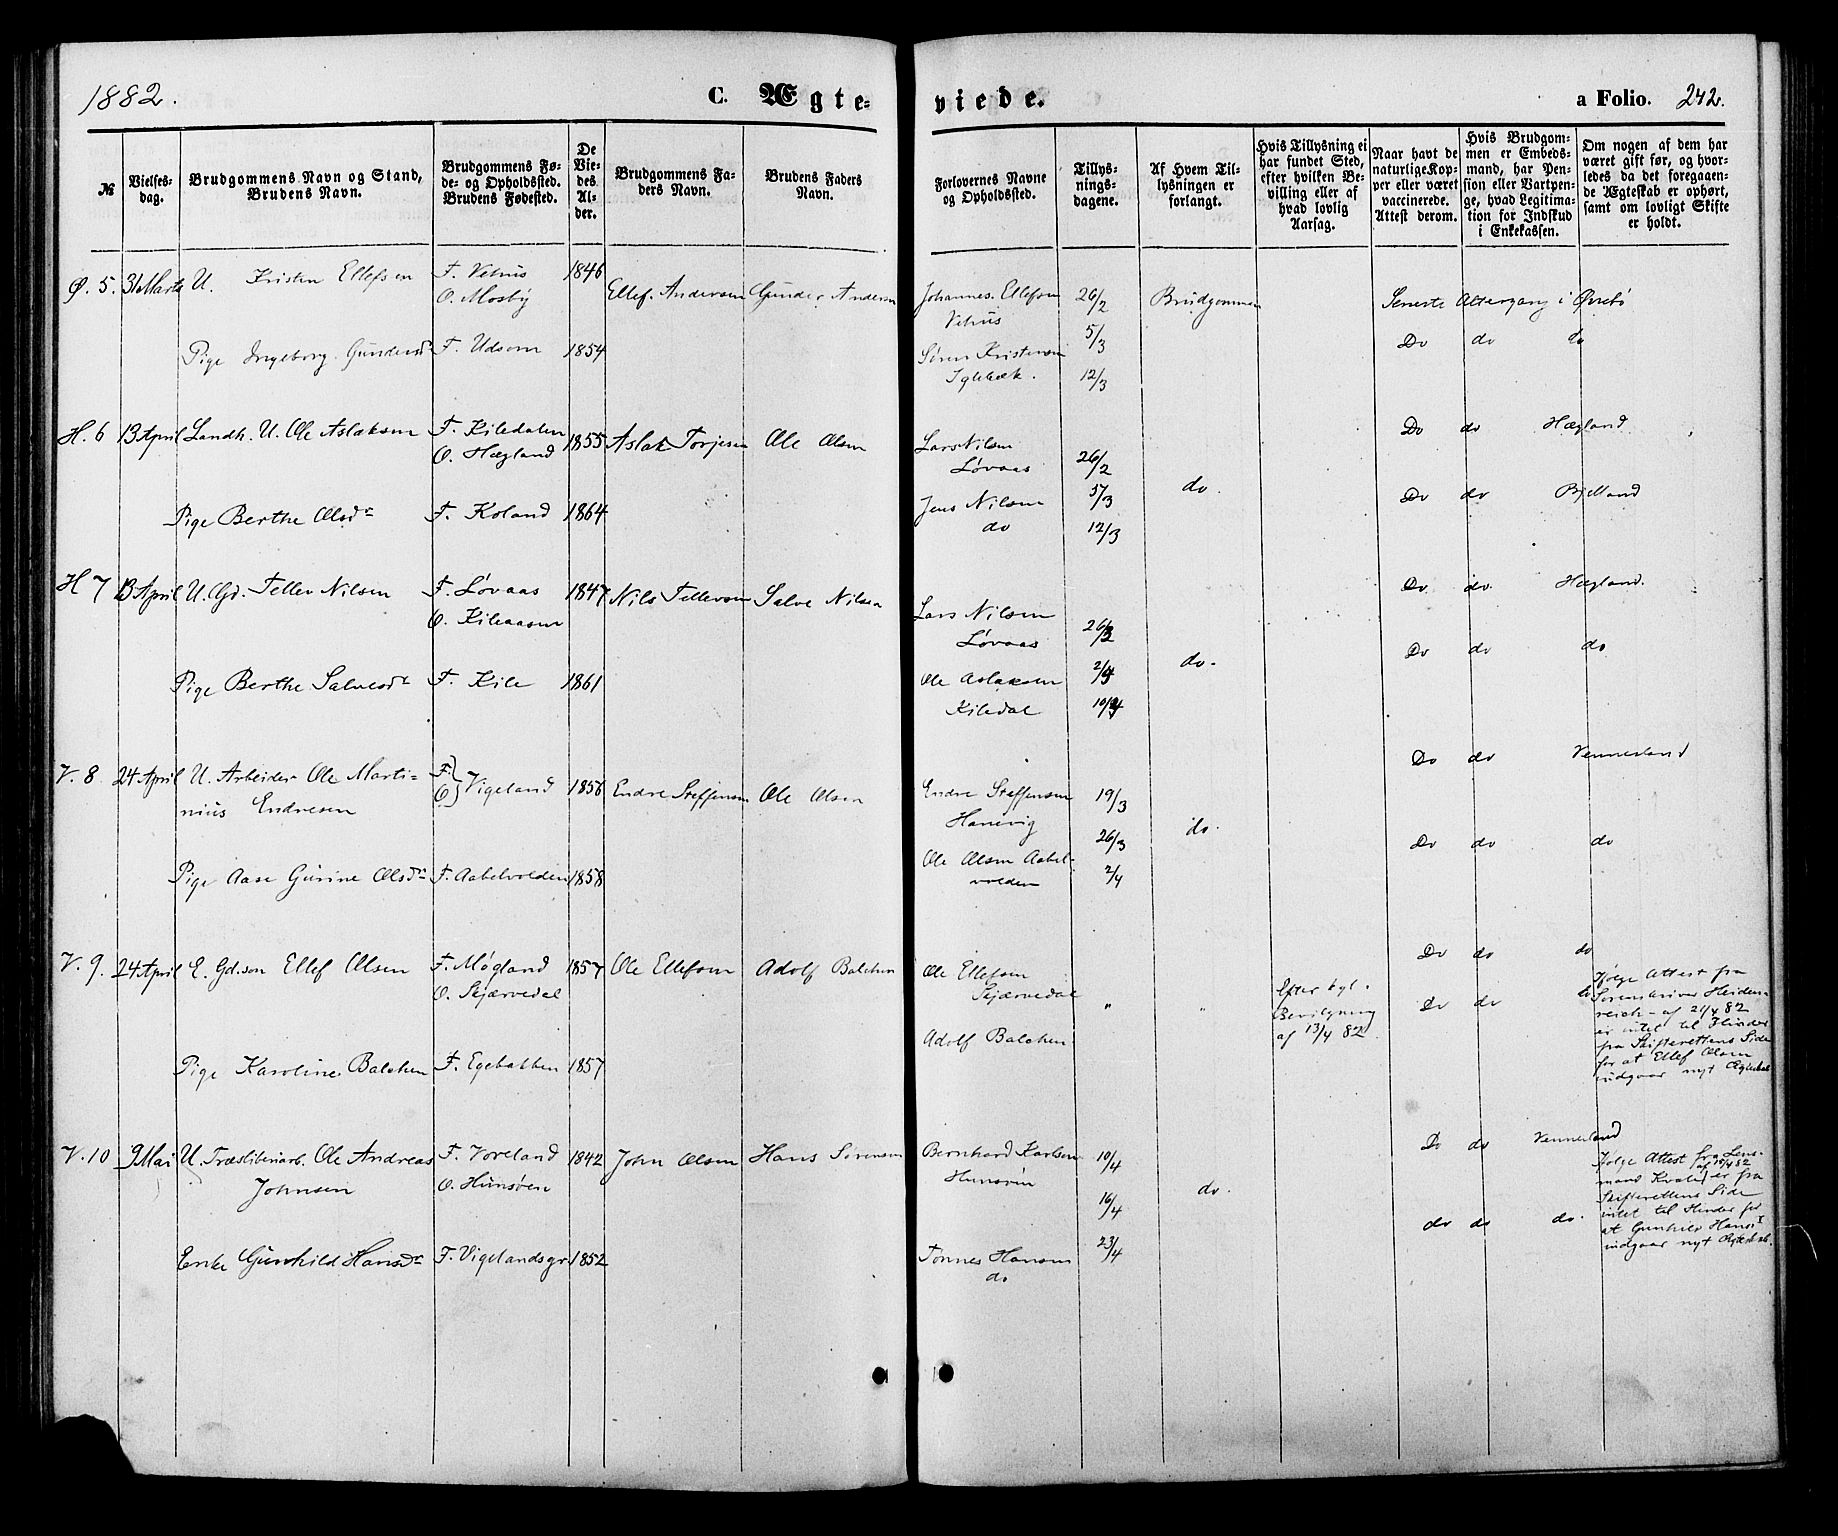 1882.
C. Ægteviede.
a Folio. 242.
№
Vielsesdag.
Brudgommens Navn og Stand, Brudens Navn.
Brudgommens Føde- og Opholdssted. Brudens Fødested.
De Viedes Alder.
Brudgommens Faders Navn.
Brudens Faders Navn.
Forlovernes Navne og Opholdssted.
Tillysningsdagene.
Af Hvem Tillysningen er forlangt.
Hvis Tillysning ei har fundet Sted, efter hvilken Bevilling eller af hvad lovlig Aarsag.
Naar havt de naturlige Kopper eller været vaccinerede. Attest derom.
Hvis Brudgommen er Embedsmand, har Pension eller Vartpenge, hvad Legitimation for Indskud i Enkekassen.
Om nogen af dem har været gift før, og hvorledes da det foregaaende Ægteskab er ophørt, samt om lovligt Skifte er holdt.
Ø. 5. 31 Marts U. Kristen Ellefsen F. Vehus 1846 Ellef. Andersen Gunder Andersen Johannes. Ellefsen 26/2 Brudgommen Seneste Altergang i Øvrebø
O. Mosby Vehus
Pige Ingeborg Gundersdr F. Udsom 1854 Søren Kristensen 5/3 Do do do
Iglebæk. 12/3
H. 6 13 April Landh. U. Ole Aslaksen F. Kiledalen 1855 Aslak Torjesen Ole Olsen Lars Nilsen Do do Hægland
O. Hægland Løvaas 26/2
Pige Berthe Olsdr F. Koland 1864 Jens Nilsen 5/3 do. Do do Bjelland
do 12/3
H 7 13 April U. Gd. Tellev Nilsen F. Løvaas 1847 Nils Tellevsen Salve Nilsen Lars Nilsen Do do Hægland.
O. Kileaasen Løvaas 26/3
Pige Berthe Salvesdr F. Kile 1861 Ole Aslaksen 2/4 do. Do do do
Kiledal 10/4
V. 8 24 April U. Arbeider Ole Marti- F. O. Vigeland 1856 Endre Steffensen Ole Olsen Endre Steffensen 19/3 Do do Vennesland
nius Endresen Hanevig 26/3 do.
Pige Aase Gurine Olsdr F. Aabelvolden 1858 Ole Olsen Aabel- 2/4 Do do do
volden
V. 9. 24 April E. Gd.søn Ellef Olsen F. Møgland 1857 Ole Ellefsen Adolf Balchen Ole Ellefsen Do do do
O. Skjærvedal Skjærvedal " " Efter kgl. Do do do
Bevilgning
af 13/4 82.
Adolf Balchen
Ifølge Attest fra
Sorenskriver Heiden-
reich af 21/4 82
er intet til Hinder
fra Skifterettens Side
for at Ellef Olsen
indgaar nyt Ægteskab
Pige Karoline Balchen F. Egebakken 1857
V. 10 9 Mai U. Træsliberiarb. Ole Andreas F. Voreland 1842 John Olsen Hans Sørensen Bernhard Karlsen 10/4 Do do Vennesland
Johnsen O. Hunsøen Hunsøen 16/4 do.
Enke Gunhild Hansdr F. Vigelandsgr. 1852 Tønnes Hansen 23/4 do do do.
do
Ifølge Attest fra Lens-
mand Kvale af 15/4 82 er fra
Skifterettens Side
intet til Hinder for
at Gunhild Hansdr
indgaar nyt Ægteskab.